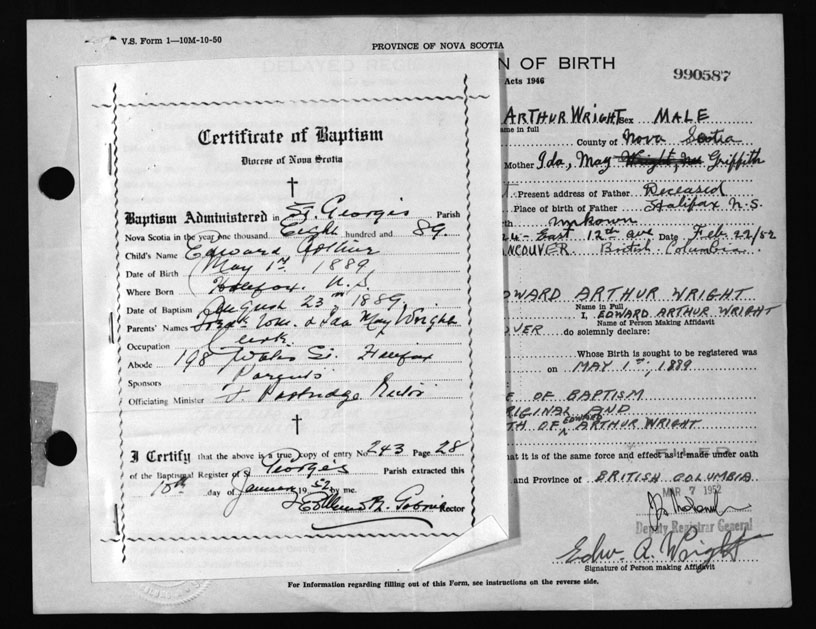 V.S. Form 1—10M-10-50
PROVINCE OF NOVA SCOTIA
N OF BIRTH
Acts 1946
990587
Certificate of Baptism
Diocese of Nova Scotia
Baptism Administered in St. George's Parish
Nova Scotia in the year one thousand Eight hundred and 89.
Child's Name Edward Arthur
Date of Birth May 1st 1889
Where Born Halifax. N.S.
Date of Baptism August 23rd 1889.
Parents' Names Wm. & Ida May Wright
Occupation Clerk
Abode 198 St. Halifax
Sponsors Parents
Officiating Minister F. Partridge Rector
I Certify that the above is a true copy of entry No 243 Page 28
of the Baptismal Register of St Georges Parish extracted this
10th day of January 1952 by me.
Rector
ARTHUR WRIGHT Sex MALE
ame in full
County of Nova Scotia
Mother Ida, May Griffith
Present address of Father Deceased
Place of birth of Father Halifax N.S.
th unkown
East 12th ave Date Feb 22/52
ANCOUVER British Columbia
DWARD ARTHUR WRIGHT
Name in Full
I, EDWARD ARTHUR WRIGHT
Name of Person Making Affidavit
VER do solemnly declare:
Whose Birth is sought to be registered was
on MAY 1st, 1889
E OF BAPTISM
RIGINAL AND
TH OF EDWARD ARTHUR WRIGHT
at it is of the same force and effect as if made under oath
and Province of BRITISH COLUMBIA
MAR 7 1952
Deputy Registrar General
Edw. A. Wright
Signature of Person making Affidavit
For Information regarding filling out of this Form, see instructions on the reverse side.